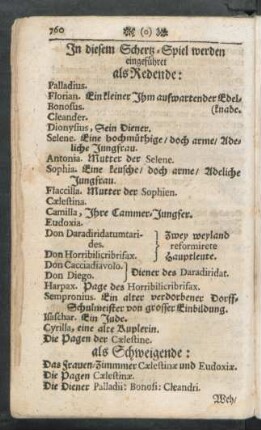 760 (o)
In diesem Schertz-Spiel werden
eingeführet
als Redende:
Palladius.
Florian. Ein kleiner Ihm aufwartender Edel-
Bonosus. (knabe.
Cleander.
Dionysius, Sein Diener.
Selene. Eine hochmüthige/ doch arme/ Ade-
liche Jungfrau.
Antonia. Mutter der Selene.
Sophia. Eine keusche/ doch arme/ Adeliche
Jungfrau.
Flaccilla. Mutter der Sophien.
Cælestina.
Camilla, Ihre Cammer-Jungfer.
Eudoxia.
Don Daradiridatumtari- } Zwey weyland
des. } reformirete
Don Horribilicribrifax. } Hauptleute.
Don Cacciadiavolo. } Diener des Daradiridat.
Don Diego.
Harpax. Page des Horribilicribrifax.
Sempronius. Ein alter verdorbener Dorff-
Schulmeister von grosser Einbildung.
Isaschar. Ein Jude.
Cyrilla, eine alte Kuplerin.
Die Pagen der Cælestine.
als Schweigende:
Das Frauen-Zimmer Cælestinæ und Eudoxiæ.
Die Pagen Cælestinæ.
Die Diener Palladii: Bonosi: Cleandri.
Weh/